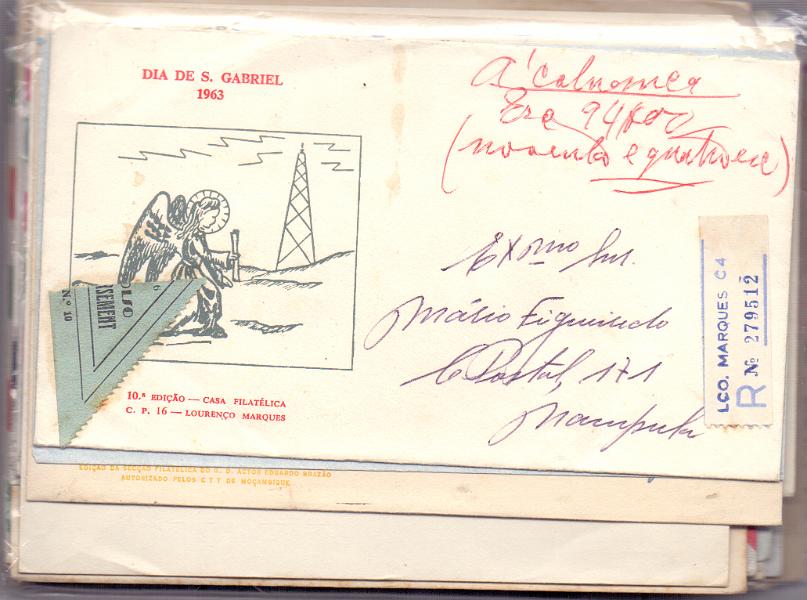 DIA DE S. GABRIEL
1963
Á cobrança
Esc 94$00
(noventa e quatro esc)
Exmo Snr.
Mário Figueiredo
C Postal, 171
Nampula
LÇO. MARQUES C4
R Nº 279512
6
OLSO
RSEMENT
N.º 10
10.ª EDIÇÃO — CASA FILATÉLICA
C. P. 16 — LOURENÇO MARQUES
EDIÇÃO DA SECÇÃO FILATÉLICA DO G. D. ACTOR EDUARDO BRAZÃO
AUTORIZADO PELOS C T T DE MOÇAMBIQUE